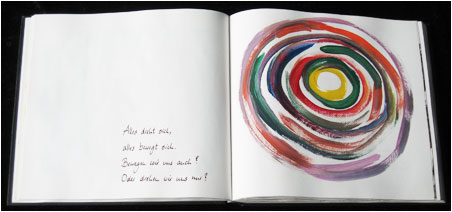 Alles dreht sich,
alles bewegt sich.
Bewegen wir uns auch?
Oder drehen wir uns nur?